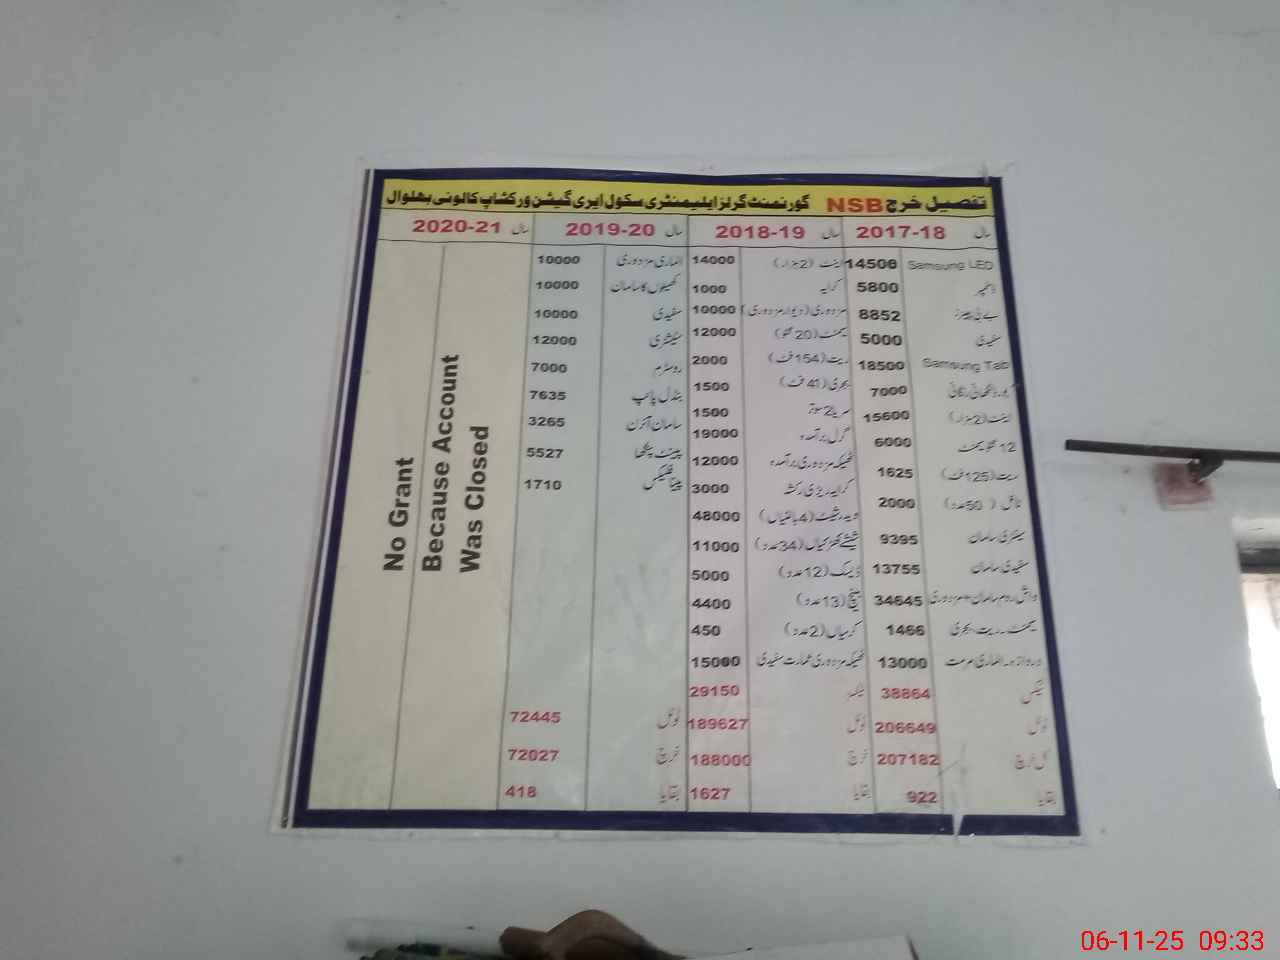 تفصیل خرچ NSB گورنمنٹ گرلز ایلیمنٹری سکول ایری گیشن ورکشاپ کالونی بھلوال
سال 2017-18
Samsung LED 14500
ڈسپنسر 5800
بے بی چیئرز 8852
سفیدی 5000
Samsung Tab 18500
بورڈ لکھائی رنگائی 7000
اینٹ (2ہزار) 15600
12 گٹو سیمنٹ 6000
ریت (125 فٹ) 1625
ٹائل ( 50عدد) 2000
سینٹری سامان 9395
سفیدی سامان 13755
واش روم سامان + مزدوری 34645
سیمنٹ۔ ریت، بجری 1466
دروازہ۔ الماری مرمت 13000
ٹیکس 38864
ٹوٹل 206649
کل خرچ 207182
بقایا 922
سال 2018-19
اینٹ (2ہزار) 14000
کرایہ 1000
مزدوری (دیوار مزدوری) 10000
سیمنٹ (20 گٹو) 12000
ریت (154 فٹ) 2000
بجری (41 فٹ) 1500
سریا 2 سوتر 1500
گرل برآمدہ 19000
ٹھیکہ مزدوری برآمدہ 12000
کرایہ ریڑی رکشہ 3000
48000
شیشے کھڑکیاں (34عدد) 11000
ڈیسک (12 عدد) 5000
بینچ (13عدد) 4400
کرسیاں (2عدد) 450
ٹھیکہ مزدوری عمارت سفیدی 15000
ٹیکس 29150
ٹوٹل 189627
خرچ 188000
بقایا 1627
سال 2019-20
الماری مزدوری 10000
کھیلوں کا سامان 10000
سفیدی 10000
سٹیشنری 12000
روسٹرم 7000
بنڈل پائپ 7635
سامان آئرن 3265
پینٹ پنکھا 5527
پینا فلیکس 1710
ٹوٹل 72445
خرچ 72027
بقایا 418
سال 2020-21
No Grant
Because Account
Was Closed
06-11-25 09:33